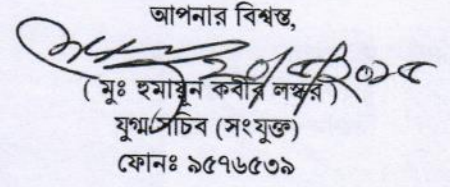 আপনার বিশ্বস্ত,
( মুঃ হুমায়ুন কবীর লস্কর )
যুগ্মসচিব (সংযুক্ত)
ফোনঃ ৯৫৭৬৫৩৯